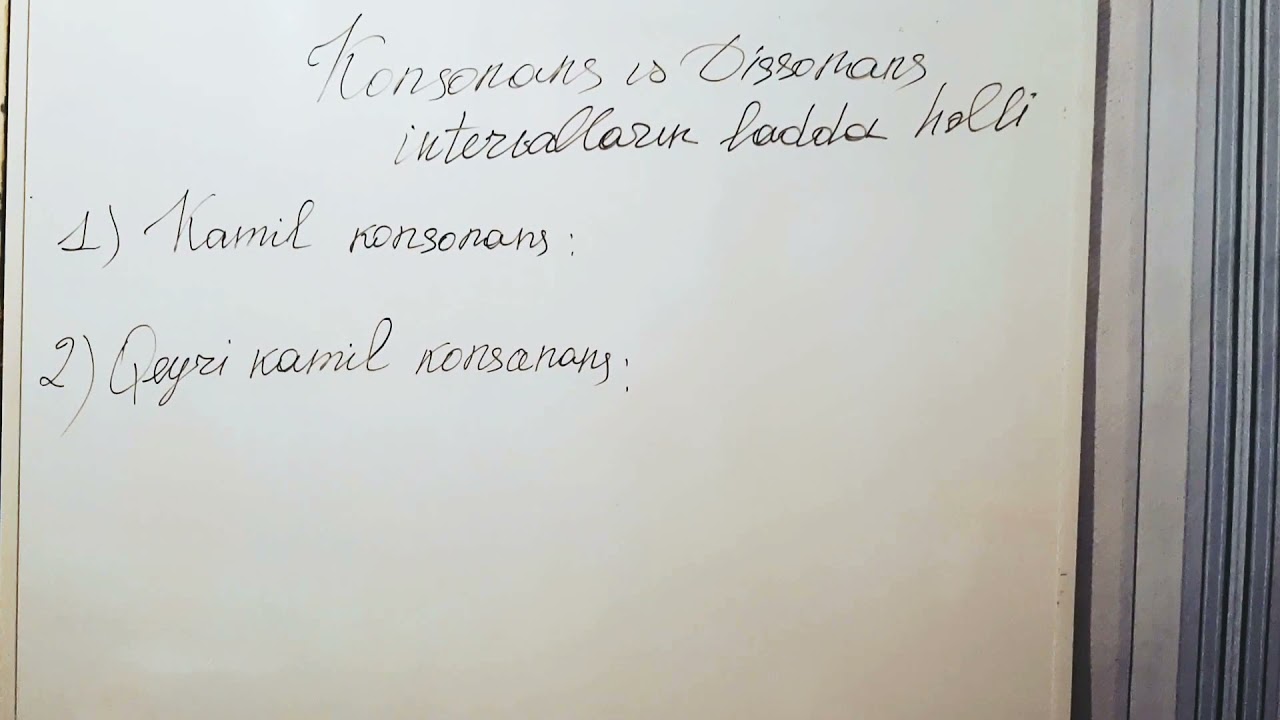 Konsonans və Dissonans
intervalların ladda həlli
1) Kamil konsonans:
2) Qeyri kamil konsonans: